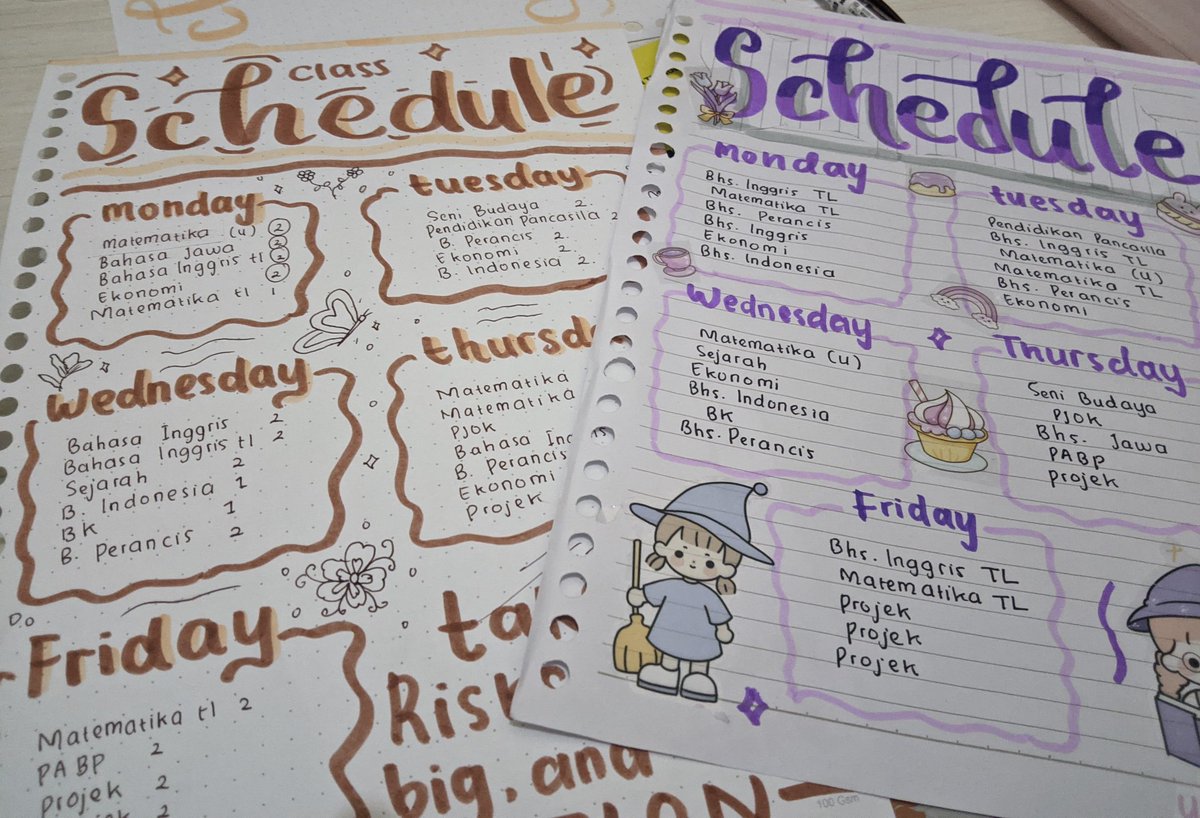 class
Schedule
monday
Matematika (u) 2
Bahasa Jawa 2
Bahasa Inggris tl 2
Ekonomi 2
Matematika tl 1
tuesday
Seni Budaya 2
Pendidikan Pancasila 2
B. Perancis 2
Ekonomi 2
B. Indonesia 2
Wednesday
Bahasa Inggris 2
Bahasa Inggris tl 2
Sejarah 2
B. Indonesia 1
BK 1
B. Perancis 2
Matematika
Matematika
PJOK
Bahasa
B. Perancis
Ekonomi
Projek
Friday
Matematika tl 2
PABP 2
Projek 2
2
big, and
100 Gsm
Schedule
Monday
Bhs. Inggris TL
Matematika TL
Bhs. Perancis
Bhs. Inggris
Ekonomi
Bhs. Indonesia
tuesday
Pendidikan Pancasila
Bhs. Inggris TL
Matematika (u)
Matematika TL
Bhs. Perancis
Ekonomi
Wednesday
Matematika (u)
Sejarah
Ekonomi
Bhs. Indonesia
BK
Bhs. Perancis
Thursday
Seni Budaya
PJOK
Bhs. Jawa
PABP
Projek
Friday
Bhs. Inggris TL
Matematika TL
Projek
Projek
Projek